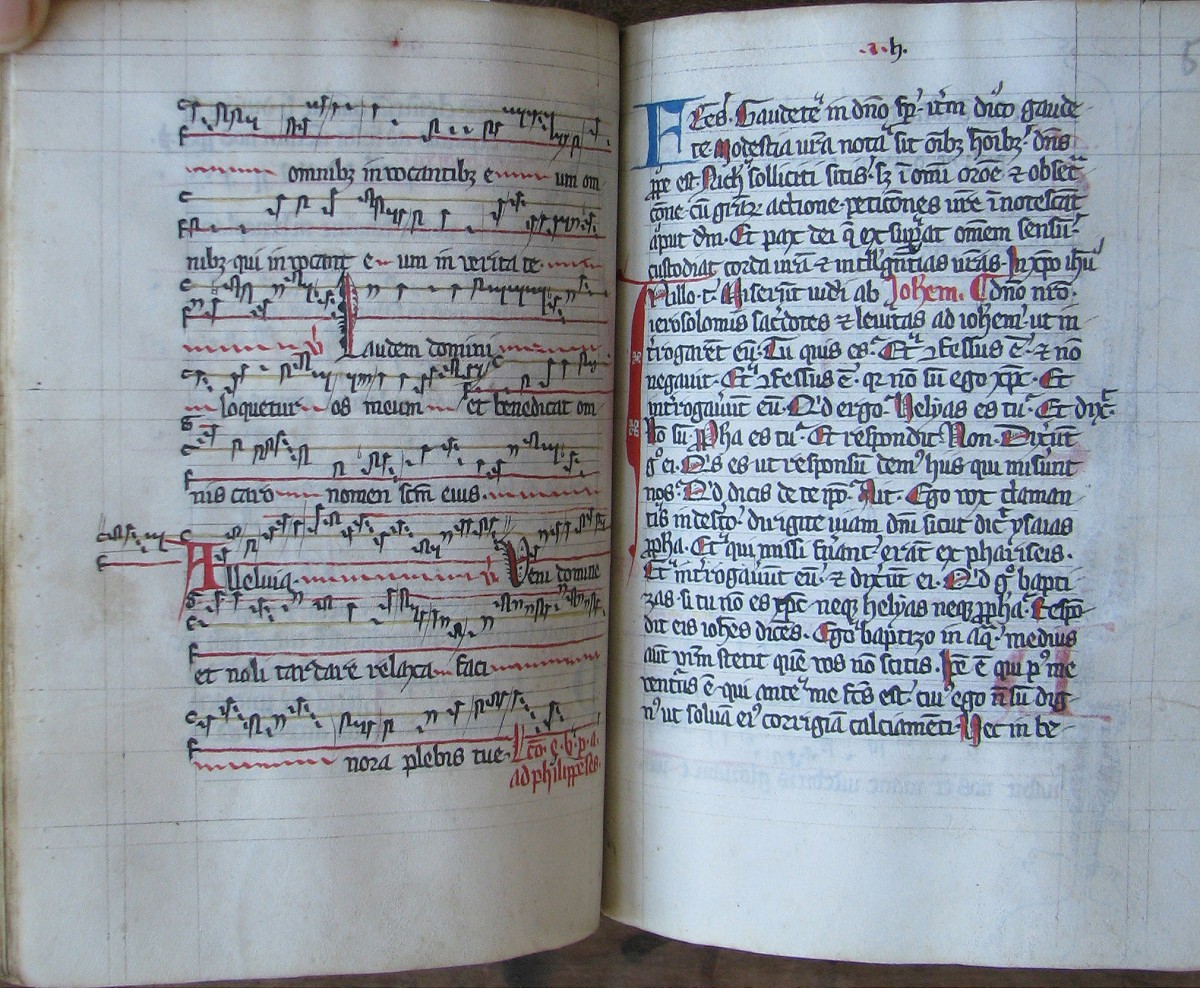 omnibȝ invocantibȝ e um om
nibȝ qui invocant e um in verita te
Laudem domini
loquetur os meum et benedicat om
nis caro nomen scm eius.
Alleluia. Veni domine
et noli tardare relaxa faci
nora plebis tue. Lcō. e. b. p. a.
ad philippēses.
.x.h.
Frēs. Gaudete in dnō sp. itm dico gaude
te Modestia vrā nota sit oībȝ hoībȝ. dns
ppe est. Nich solliciti sitis. sȝ ī omi orōe ⁊ obsec
cōne cū grār actione peticōnes vrē īnotescāt
aput dm. Et pax dei q̄ exsupat omem sensū
custodiat corda vrā ⁊ intllgntias vrās. In xpo ihu
In illo. t. Miserūt iudei ab Iohem. dno nrō.
ierosolomis sacdotes ⁊ levitas ad iohem ut in
trogarēt eū. Tu quis es. Et ɔfessus ē. ⁊ nō
negavit. Et ɔfessus ē. qr nō sū ego xpc. Et
introgavūt eū. Qd ergo. Helyas es tu. Et dixt.
Nō su. Ppha es tu. Et respondit Non. Dixūt
g ei. Qs es ut responsū dem hus qui misūnt
nos. Qd dicis de te ipo. Ait. Ego vox claman
tis in desto. dirigite viam dni sicut dic ysaias
ppha. Et qui missi fuant erāt ex phariseis.
Et introgavūt eū. ⁊ dixūt ei. Qd g bapti
zas si tu nō es xpc neqȝ helyas neqȝ ppha. Respō
dit eis iohes dices. Ego baptizo in aq. medius
aūt vrm stetit quē vos nō scitis. Ipe ē qui p me
ventus ē qui ante me fcs est. cui ego n sū dig
n ut solvā ei corrigiā calciamenti. Hec in be